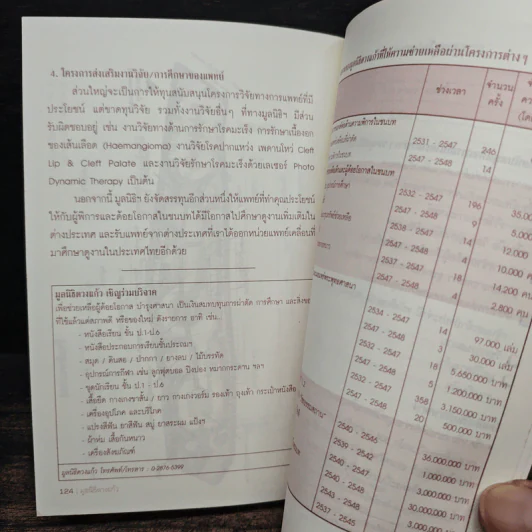 4. โครงการส่งเสริมงานวิจัย/การศึกษาของแพทย์
ส่วนใหญ่จะเป็นการให้ทุนสนับสนุนโครงการวิจัยทางการแพทย์ที่มี
ประโยชน์ แต่ขาดทุนวิจัย รวมทั้งงานวิจัยอื่นๆ ที่ทางมูลนิธิฯ มีส่วน
รับผิดชอบอยู่ เช่น งานวิจัยทางด้านการรักษาโรคมะเร็ง การรักษาเนื้องอก
ของเส้นเลือด (Haemangioma) งานวิจัยโรคปากแหว่ง เพดานโหว่ Cleft
Lip & Cleft Palate และงานวิจัยรักษาโรคมะเร็งด้วยเลเซอร์ Photo
Dynamic Therapy เป็นต้น
นอกจากนี้ มูลนิธิฯ ยังจัดสรรทุนอีกส่วนหนึ่งให้แพทย์ที่ทำคุณประโยชน์
ให้กับผู้พิการและด้อยโอกาสในชนบทได้มีโอกาสไปศึกษาดูงานเพิ่มเติมใน
ต่างประเทศ และรับแพทย์จากต่างประเทศที่เราได้ออกหน่วยแพทย์เคลื่อนที่
มาศึกษาดูงานในประเทศไทยอีกด้วย
มูลนิธิดวงแก้ว เชิญร่วมบริจาค
เพื่อช่วยเหลือผู้ด้อยโอกาส บำรุงศาสนา เป็นเงินสมทบทุนการผ่าตัด การศึกษา และสิ่งของ
ที่ใช้แล้วแต่สภาพดี หรือของใหม่ ดังรายการ อาทิ เช่น..
- หนังสือเรียน ชั้น ป.1-ป.6
- หนังสือประกอบการเรียนชั้นประถมฯ
- สมุด / ดินสอ / ปากกา / ยางลบ / ไม้บรรทัด
- อุปกรณ์การกีฬา เช่น ลูกฟุตบอล ปิงปอง หมากกระดาน ฯลฯ
- ชุดนักเรียน ชั้น ป.1 - ป.6
- เสื้อยืด กางเกงขาสั้น / ยาว กางเกงวอร์ม รองเท้า ถุงเท้า กระเป๋าหนังสือ
- เครื่องอุปโภค และบริโภค
- แปรงสีฟัน ยาสีฟัน สบู่ ยาสระผม แป้งฯ
- ผ้าห่ม เสื้อกันหนาว
- เครื่องสังฆภัณฑ์
มูลนิธิดวงแก้ว โทรศัพท์/โทรสาร : 0-2876-5399
124 | มูลนิธิดวงแก้ว
มูลนิธิดวงแก้วที่ให้ความช่วยเหลือผ่านโครงการต่างๆ
ช่วงเวลา
จำนวน
ครั้ง
2531 - 2547 246
2547 - 2548 14
2532 - 2547 196
2547 - 2548 9
2538 - 2547 14
2547 - 2548 4
2537 - 2547 18
2547 - 2548 4
2534 - 2547 14
2547 - 2548 3
2532 - 2547 18
2547 - 2548 5
2532 - 2547 358
2547 - 2548 20
12,000
10,000 คู่
14,200 คน
2,800 คน
97,000 เล่ม
30,000 เล่ม
5,650,000 บาท
1,200,000 บาท
3,150,000 บาท
500,000 บาท
2540 - 2545
2539 - 2542
2540 - 2547
2540 - 2548
2543 - 2548
2537 - 2545
36,000,000 บาท
1,000,000 บาท
3,000,000 บาท
30,000,000 บาท